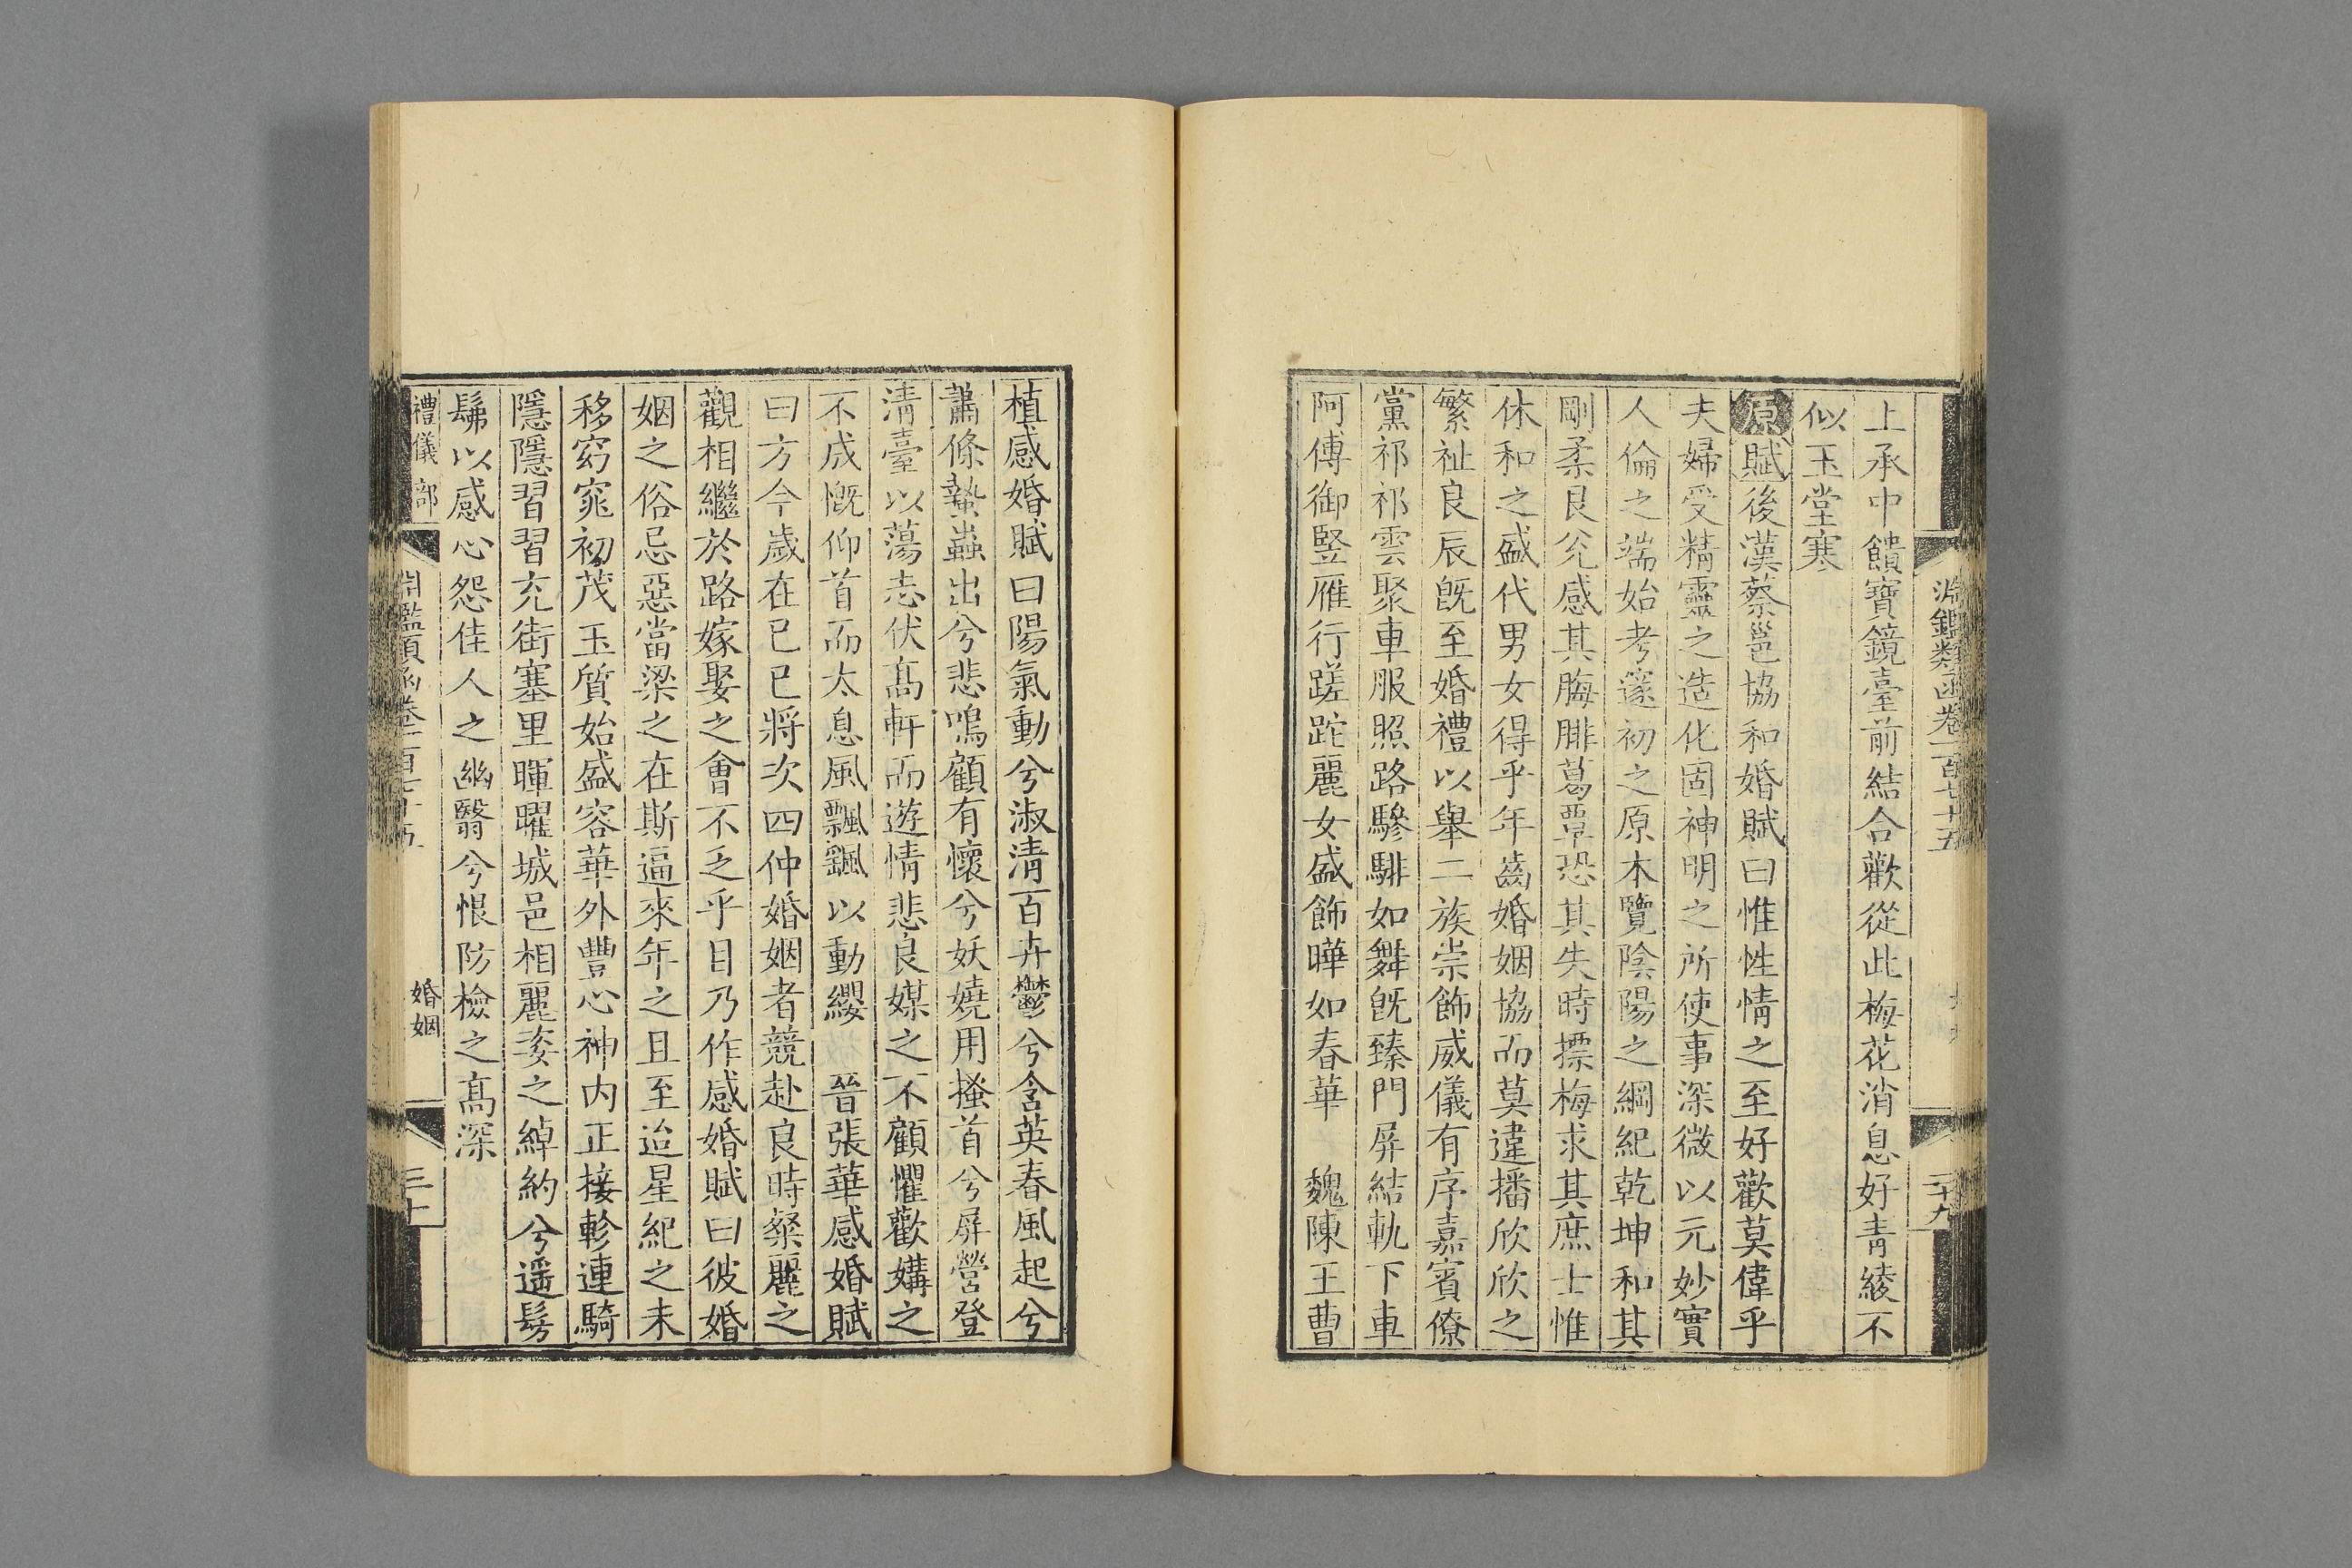 淵鑑類函卷一百七十五
二十九
上承中饋寶鏡臺前結合歡從此梅花消息好青綾不
似玉堂寒
原賦後漢蔡邕協和婚賦曰惟性情之至好歡莫偉乎
夫婦受精靈之造化固神明之所使事深微以元妙實
人倫之端始考邃初之原本覽陰陽之綱紀乾坤和其
剛柔艮兊感其脢腓葛覃恐其失時摽梅求其庶士惟
休和之盛代男女得乎年齒婚姻協而莫違播欣欣之
繁祉良辰旣至婚禮以舉二族崇飾威儀有序嘉賓僚
黨祁祁雲聚車服照路驂騑如舞旣臻門屏結軌下車
阿傅御豎雁行蹉跎麗女盛飾曄如春華 魏陳王曹
植感婚賦曰陽氣動兮淑清百卉鬱兮含英春風起兮
蕭條蟄蟲出兮悲鳴顧有懷兮妖嬈用搔首兮屏營登
清臺以蕩志伏髙軒而遊情悲良媒之不顧懼歡媾之
不成慨仰首而太息風飄颻以動纓 晉張華感婚賦
曰方今歲在己巳將次四仲婚姻者競赴良時粲麗之
觀相繼於路嫁娶之會不乏乎目乃作感婚賦曰彼婚
姻之俗忌惡當梁之在斯逼來年之且至迨星紀之未
移窈窕初茂玉質始盛容華外豐心神内正接軫連騎
隱隱習習充街塞里暉曜城邑相麗姿之綽約兮遥髣
髴以感心怨佳人之幽翳兮恨防檢之髙深
禮儀部
淵鑑類函卷一百七十五
婚姻
三十